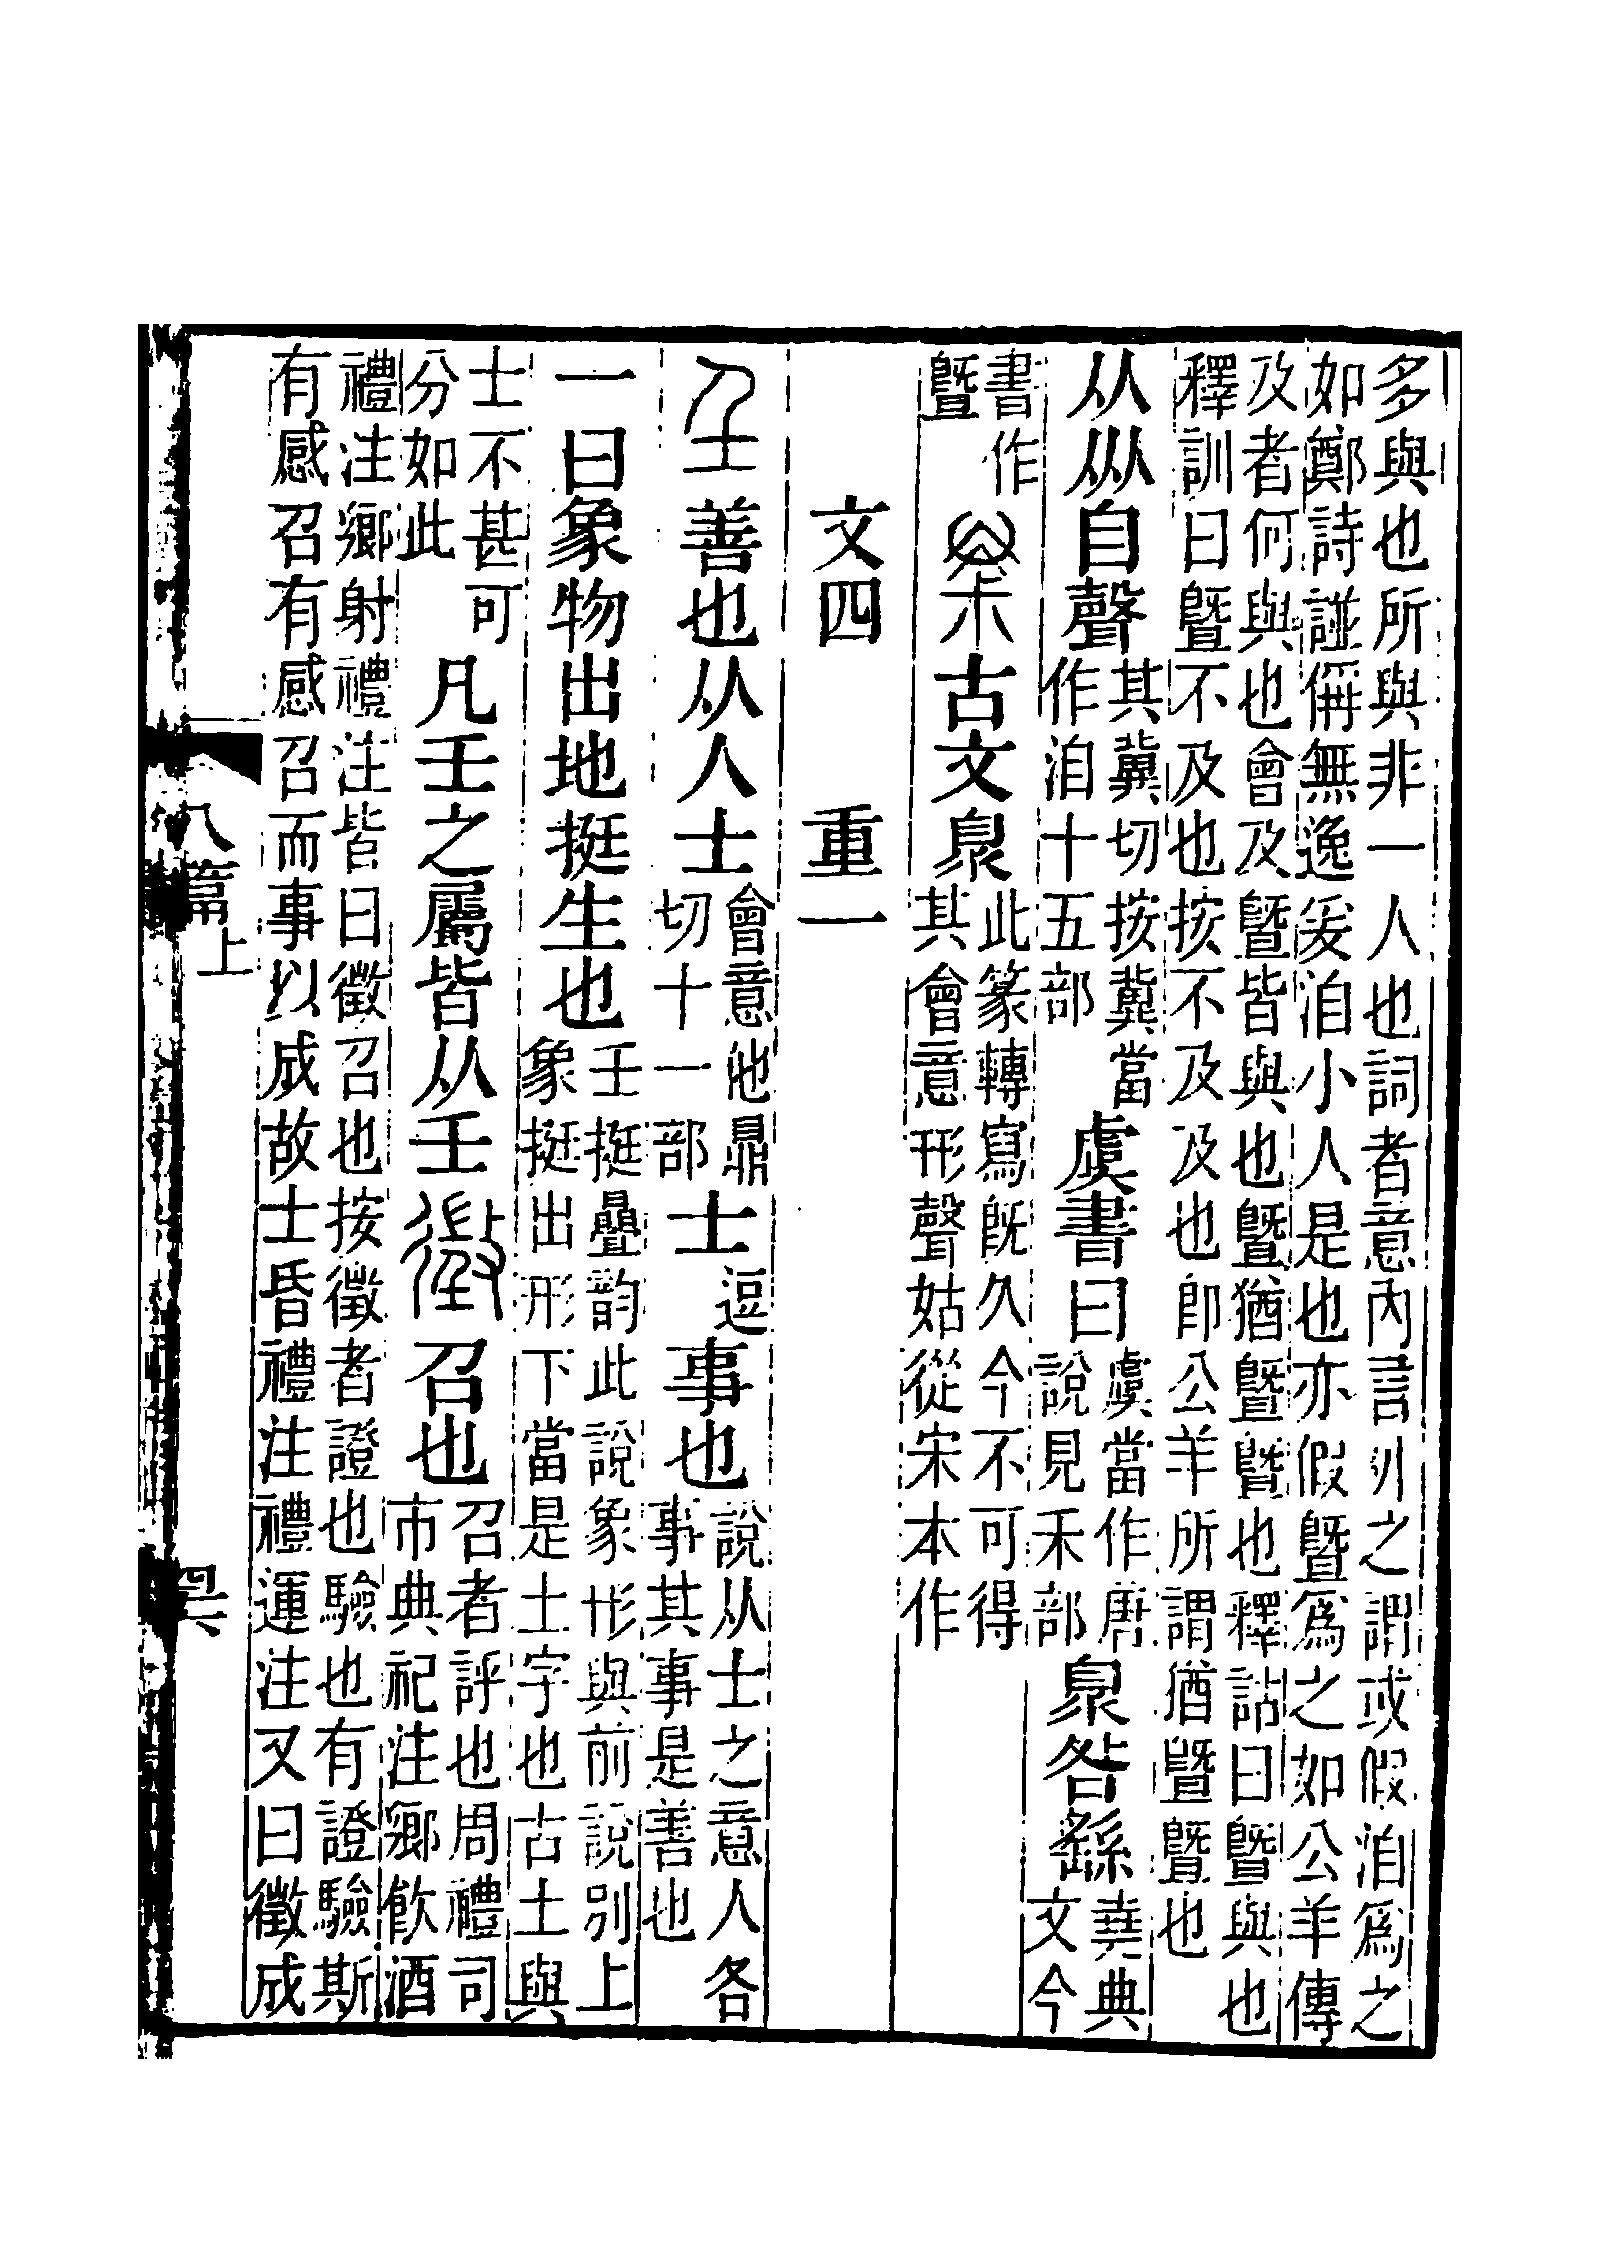 多與也所與非一人也詞者意內言外之謂或假洎爲之
如鄭詩譜偁無逸爰洎小人是也亦假曁爲之如公羊傳
及者何與也會及曁皆與也曁猶曁曁也釋詁曰曁與也
釋訓曰曁不及也按不及及也卽公羊所謂猶曁曁也
从㐺自聲
其冀切按冀當
作洎十五部
虞書曰
虞當作唐
說見禾部
臮咎繇
堯典
文今
書作
曁
古文臮
此篆轉寫旣久今不可得
其會意形聲姑從宋本作
文四 重一
善也从人士
會意他鼎
切十一部
士
逗
事也
說从士之意人各
事其事是善也
一曰象物出地挺生也
𡈼挺疊韵此說象形與前說別上
象挺出形下當是土字也古土與
士不甚可
分如此
凡𡈼之屬皆从𡈼
召也
召者評也周禮司
市典祀注鄉飮酒
禮注鄉射禮注皆曰徵召也按徵者證也驗也有證驗斯
有感召有感召而事以成故士昏禮注禮運注又曰徵成
八篇上